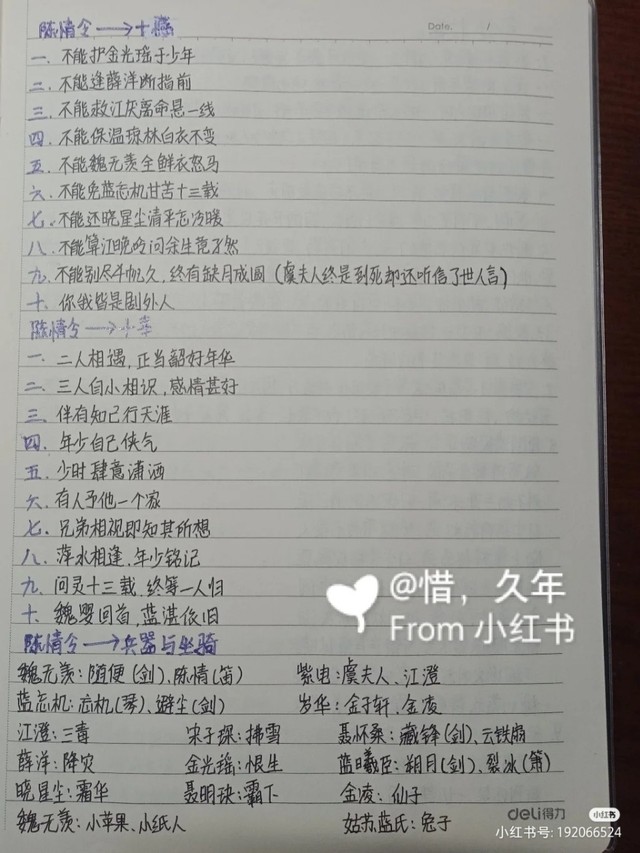 陈情令→十憾
Date. /
一、不能护金光瑶于少年
二、不能逢薛洋断指前
三、不能救江厌离命悬一线
四、不能保温琼林白衣不变
五、不能魏无羡全鲜衣怒马
六、不能免蓝忘机甘苦十三载
七、不能还晓星尘清平忘冷暖
八、不能算江晚吟问余生竟孑然
九、不能别尽年帆久，终有缺月成圆（虞夫人终是到死却还听信了世人言）
十、你我皆是剧外人
陈情令→十幸
一、二人相遇，正当韶好年华
二、三人自小相识，感情甚好
三、伴有知己行天涯
四、年少自己侠气
五、少时肆意潇洒
六、有人予他一个家
七、兄弟相视即知其所想
八、萍水相逢，年少铭记
九、问灵十三载，终等一人归
十、魏婴回首，蓝湛依旧
@惜，久年
From 小红书
陈情令→兵器与坐骑
魏无羡：随便（剑）、陈情（笛） 紫电：虞夫人、江澄
蓝忘机：忘机（琴）、避尘（剑） 岁华：金子轩、金凌
江澄：三毒 宋子琛：拂雪 聂怀桑：藏锋（剑）、云铁扇
薛洋：降灾 金光瑶：恨生 蓝曦臣：朔月（剑）、裂冰（箫）
晓星尘：霜华 聂明玦：霸下 金凌：仙子
魏无羡：小苹果、小纸人 姑苏蓝氏：兔子
deli得力 小红书
小红书号: 192066524